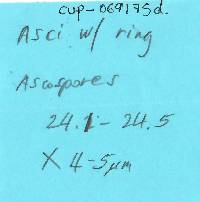 cup-069175d.
Asci w/ ring
Ascospores
24.1-24.5
X 4-5µm